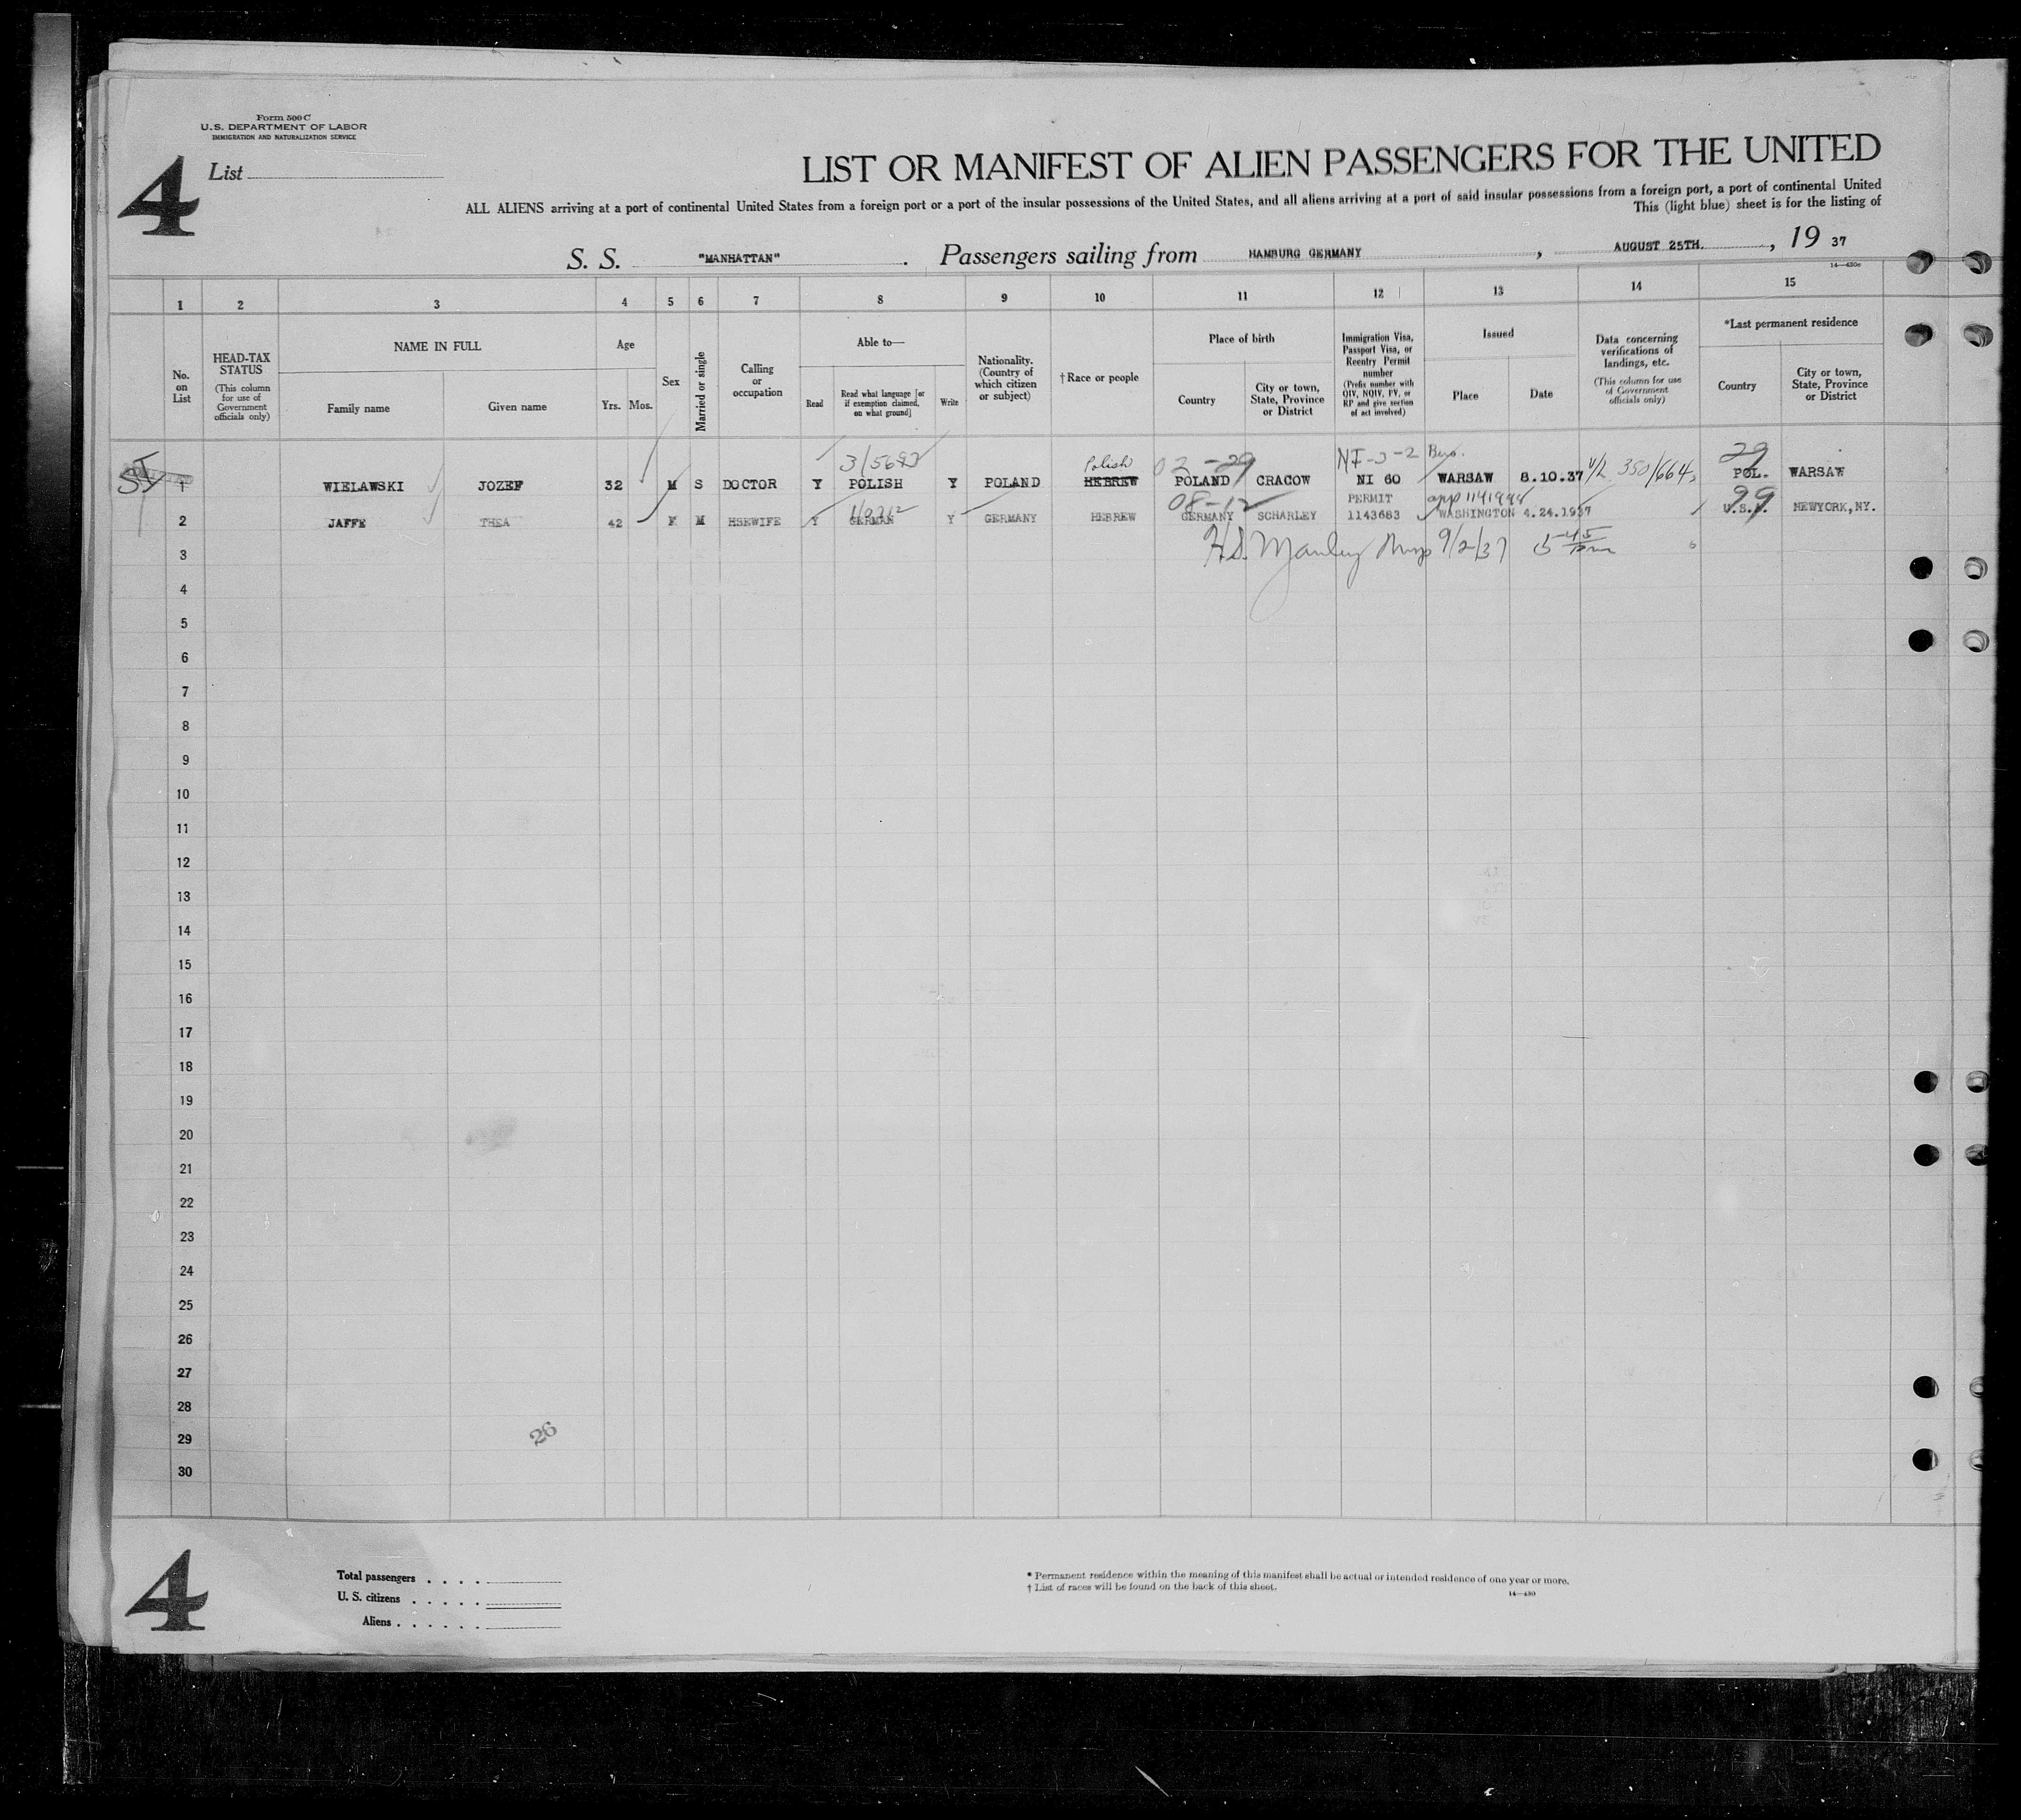 Form 500 C
U.S. DEPARTMENT OF LABOR
IMMIGRATION AND NATURALIZATION SERVICE
4
List
LIST OR MANIFEST OF ALIEN PASSENGERS FOR THE UNITED
ALL ALIENS arriving at a port of continental United States from a foreign port or a port of the insular possessions of the United States, and all aliens arriving at a port of said insular possessions from a foreign port, a port of continental United
This (light blue) sheet is for the listing of
S. S. "MANHATTAN" . Passengers sailing from HAMBURG GERMANY , AUGUST 25TH. , 19 37
14—430c
1 2 3 4 5 6 7 8 9 10 11 12 13 14 15
No. on List
HEAD-TAX STATUS
(This column for use of Government officials only)
NAME IN FULL
Family name
Given name
Age
Yrs. Mos.
Sex
Married or single
Calling or occupation
Able to—
Read
Read what language [or if exemption claimed, on what ground]
Write
Nationality. (Country of which citizen or subject)
†Race or people
Place of birth
Country
City or town, State, Province or District
Immigration Visa, Passport Visa, or Reentry Permit number
(Prefix number with QIV, NQIV, PV, or RP and give section of act involved)
Issued
Place
Date
Data concerning verifications of landings, etc.
(This column for use of Government officials only)
*Last permanent residence
Country
City or town, State, Province or District
3/5693 Polish 02 -29 NI-3-2 29
1 WIELAWSKI JOZEF 32 M S DOCTOR Y POLISH Y POLAND HEBREW POLAND CRACOW NI 60 WARSAW 8.10.37 350/664 POL. WARSAW
08-12 PERMIT 99
2 JAFFE THEA 42 F M HSEWIFE Y GERMAN Y GERMANY HEBREW GERMANY SCHARLEY 1143683 WASHINGTON 4.24.1937 U.S.A. NEWYORK,NY.
3 H.S. Manley 9/2/37 5 45 pm
4
5
6
7
8
9
10
11
12
13
14
15
16
17
18
19
20
21
22
23
24
25
26
27
28
29
30
26
4
Total passengers . . . .
U. S. citizens . . . . .
Aliens . . . . . .
* Permanent residence within the meaning of this manifest shall be actual or intended residence of one year or more.
† List of races will be found on the back of this sheet.
14—430